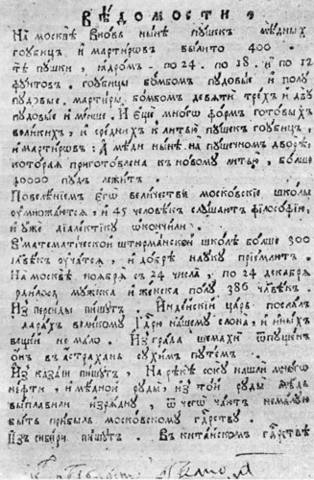 ВѢДОМОСТИ
На москвѣ вновь нынѣ пушекъ мѣдныхъ
гоубицъ и мартировъ вылито 400.
тѣ пушки, ꙗдромъ - по 24. по 18. и по 12
фунтовъ. гоубицы бомбомъ пудовые и полу
пудовые. мартиры бомбомъ девяти трехъ и дву
пудовые и менше. И еще много формъ готовыхъ
великихъ, и среднихъ к литью пушекъ гоубицъ,
и мартировъ: А мѣди нынѣ на пушечномъ дворѣ,
которая приготовлена к новому литью, болше
40000 пудъ лежитъ.
Повелѣнием его величества московские школы
оумножаются, и 45 человѣкъ слушаютъ философию,
и уже диалектику окончили.
В математической штюрманской школѣ болше 300
члвѣкъ оучатся, и добрѣ науку приемлютъ.
На москвѣ ноября съ 24 числа, по 24 декабря
родилось мужска и женска полу 386 члвѣкъ.
Из персиды пишутъ. Индѣйский царь послалъ
в дарахъ великому Гдрю нашему слона, и иныхъ
вещей не мало. Из града шемахи ѿпущенъ
онъ в астрахань сухимъ путемъ.
Из казани пишутъ. На рѣкѣ соку нашли много
нефти, и мѣдной руды, из той руды мѣдь
выплавили изрядну, ѿ чего чаютъ немалую
быть прибыль московскому гдрству.
Из сибири пишутъ. В китайскомъ гдрствѣ